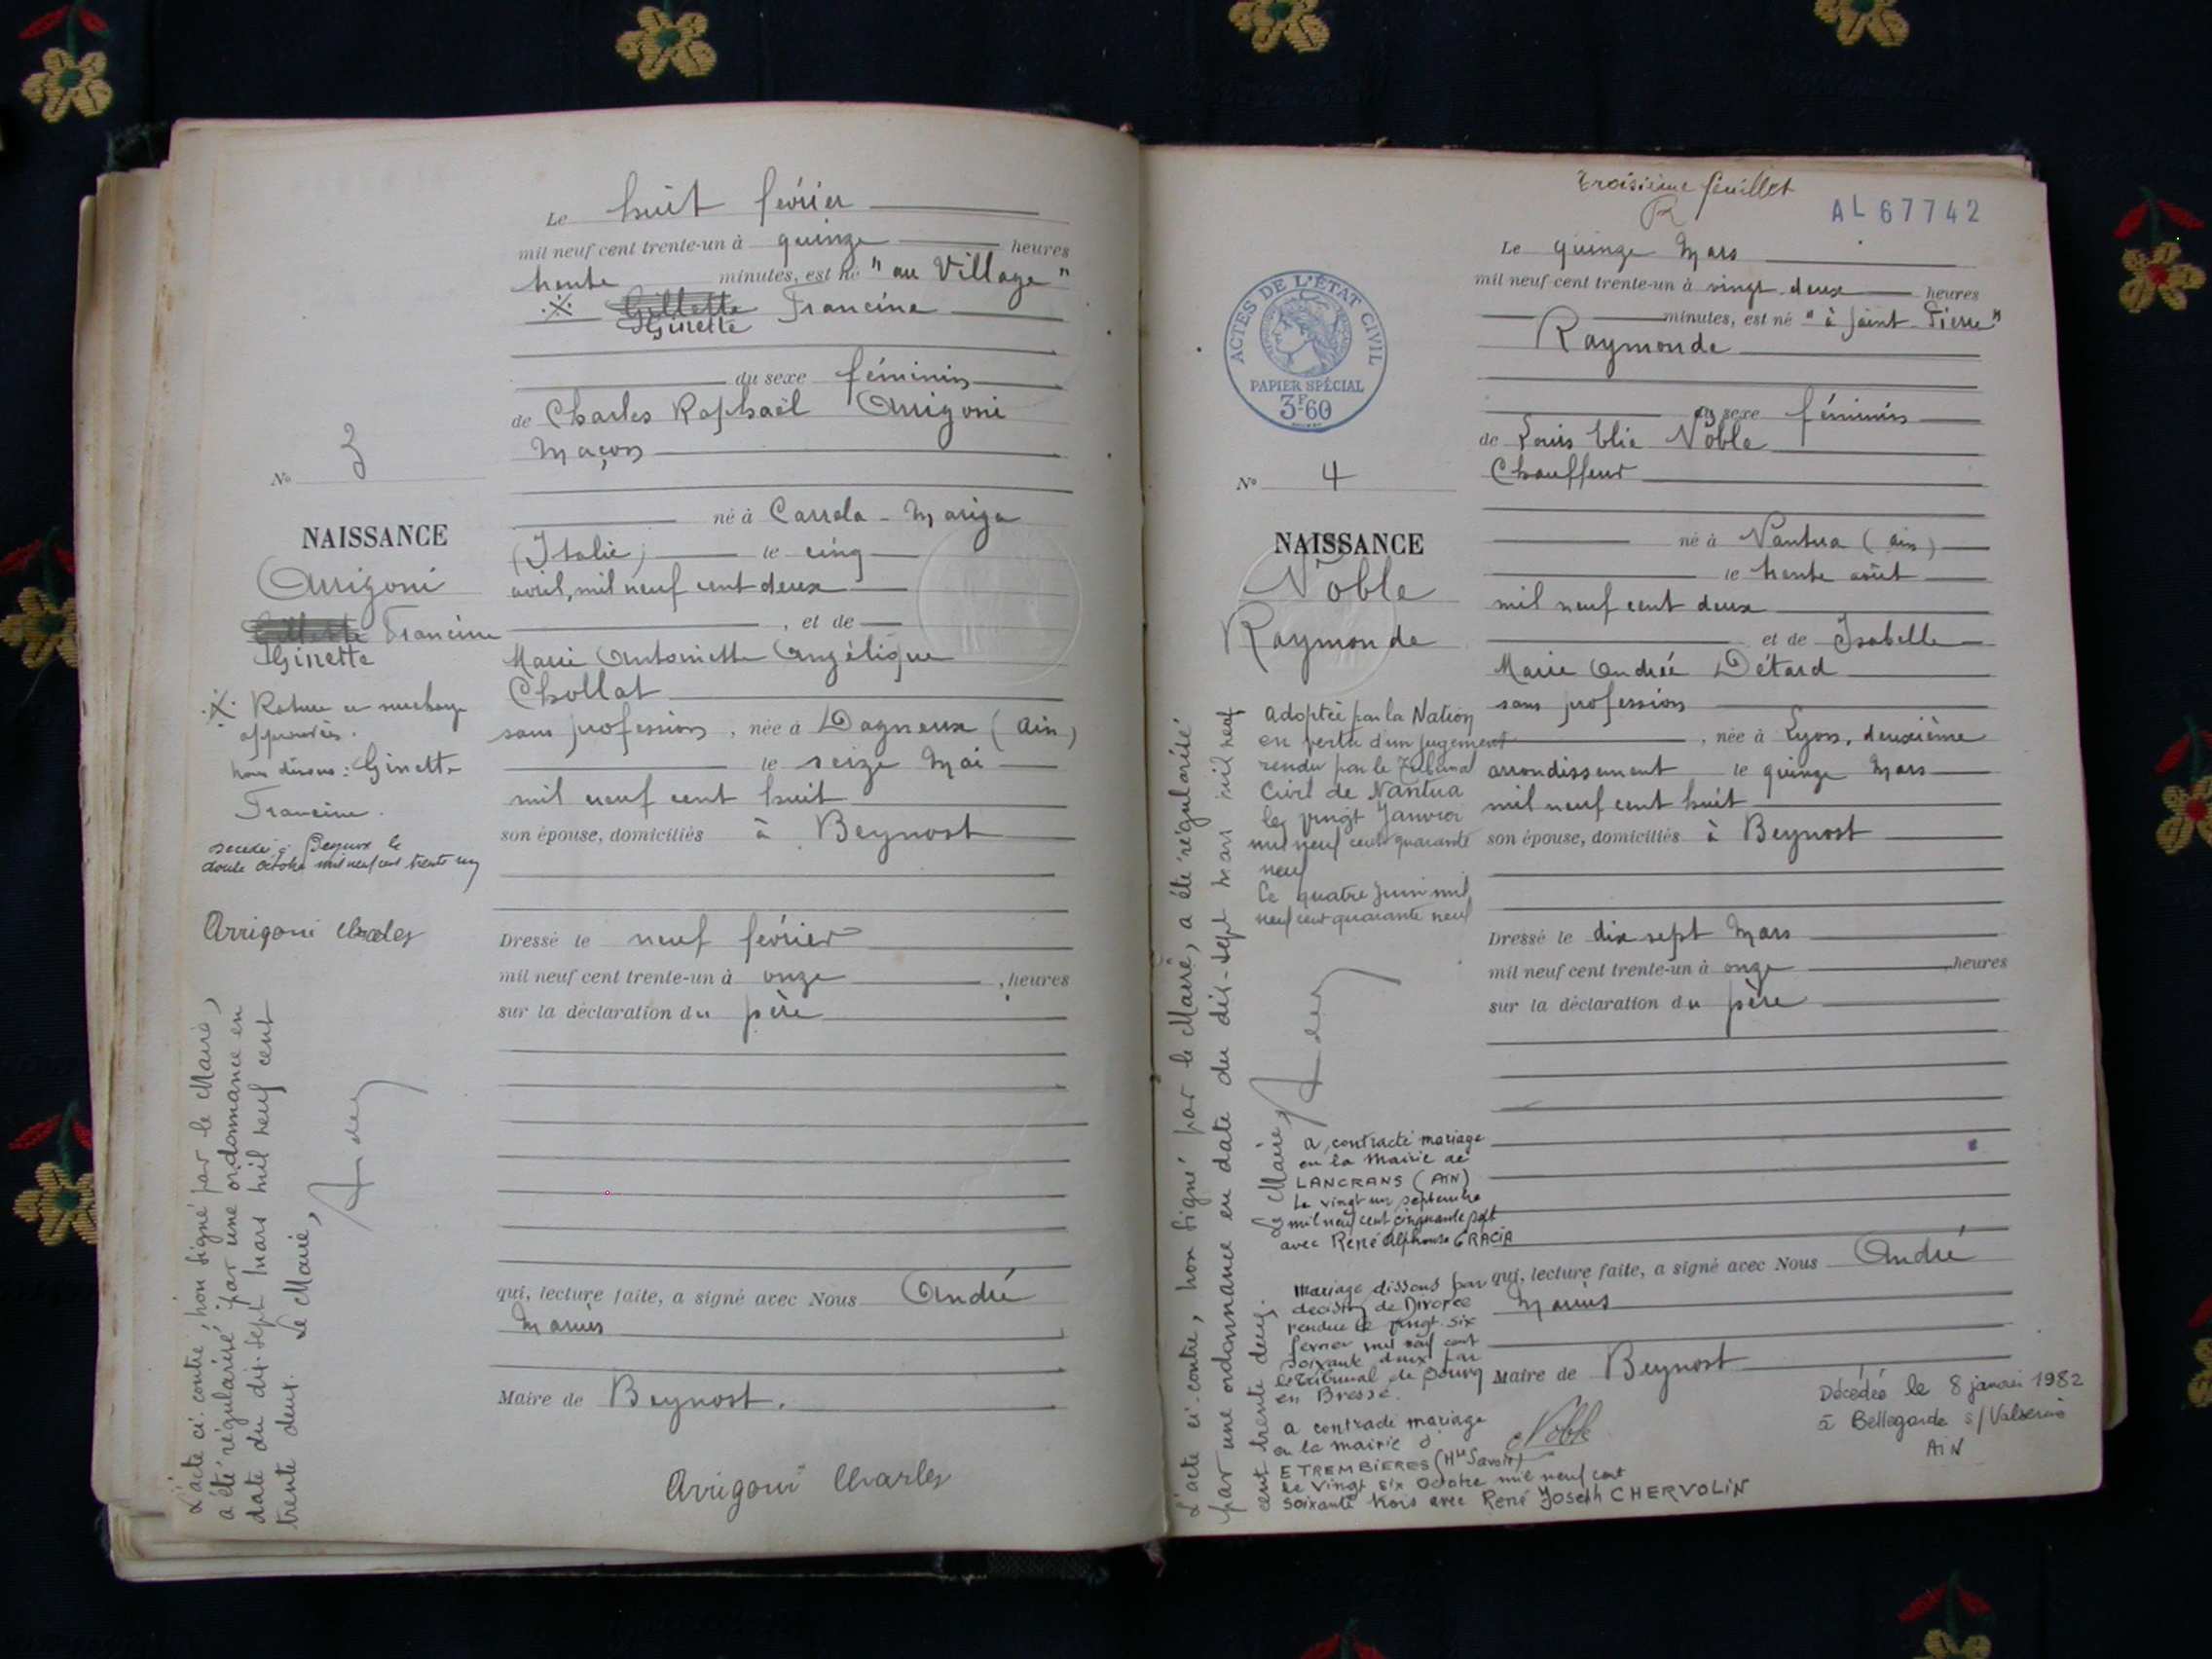 Le huit février
mil neuf cent trente-un à quinze heures
trente minutes, est né "au Village"
※ Gillette Francine
Ginette
du sexe féminin
de Charles Raphaël Arrigoni
Maçon
né à
(Italie) le cinq
avril, mil neuf cent deux
, et de
Marie Antoinette Angélique
Chollat
sans profession, née à Dagneux (Ain)
le seize Mai
mil neuf cent huit
son épouse, domiciliés à Beynost
Dressé le neuf février
mil neuf cent trente-un à onze, heures
sur la déclaration du père
qui, lecture faite, a signé avec Nous André
Marius
Maire de Beynost.
Arrigoni Charles
No 3
NAISSANCE
Arrigoni
Gillette Francine
Ginette
※ Rature et surcharge
approuvées.
nous disons : Ginette
Francine.
décédée à le
douze Octobre mil neuf cent trente un
Arrigoni Charles
L'acte ci-contre, non signé par le Maire,
a été régularisé par une ordonnance en
date du dix-sept mars mil neuf cent
trente deux. Le Maire,
troisième feuillet
AL 67742
ACTES DE L'ÉTAT CIVIL
PAPIER SPÉCIAL
3F.60
Le quinze Mars
mil neuf cent trente-un à vingt-deux heures
minutes, est né "à Saint-Pierre"
Raymonde
du sexe féminin
de Louis Elie Noble
Chauffeur
né à Nantua (Ain)
le trente août
mil neuf cent deux
et de Isabelle
Marie Andrée Détard
sans profession
, née à Lyon, deuxième
arrondissement le quinze Mars
mil neuf cent huit
son épouse, domiciliés à Beynost
Dressé le dix sept Mars
mil neuf cent trente-un à onze, heures
sur la déclaration du père
qui, lecture faite, a signé avec Nous André
Marius
Maire de Beynost
Noble
No 4
NAISSANCE
Noble
Raymonde
Adoptée par la Nation
en vertu d'un jugement
rendu par le Tribunal
Civil de Nantua
le vingt Janvier
mil neuf cent quarante
neuf
Le quatre Juin mil
neuf cent quarante neuf
L'acte ci-contre, non signé par le Maire, a été régularisé
par une ordonnance en date du dix-sept mars mil neuf
cent trente deux. Le Maire,
a contracté mariage
en la Mairie de
LANCRANS (AIN)
Le vingt un septembre
mil neuf cent cinquante sept
avec René Alphonse GRACIA
Mariage dissous par
decision de Divorce
rendue le vingt-six
fevrier mil neuf cent
soixante deux par
le Tribunal de Bourg
en Bresse.
a contracté mariage
en la mairie d'
ETREMBIERES (Hte Savoie)
le vingt six Octobre mil neuf cent
soixante trois avec René Joseph CHERVOLIN
Décédée le 8 janvier 1982
à Bellegarde s/Valserine
AIN